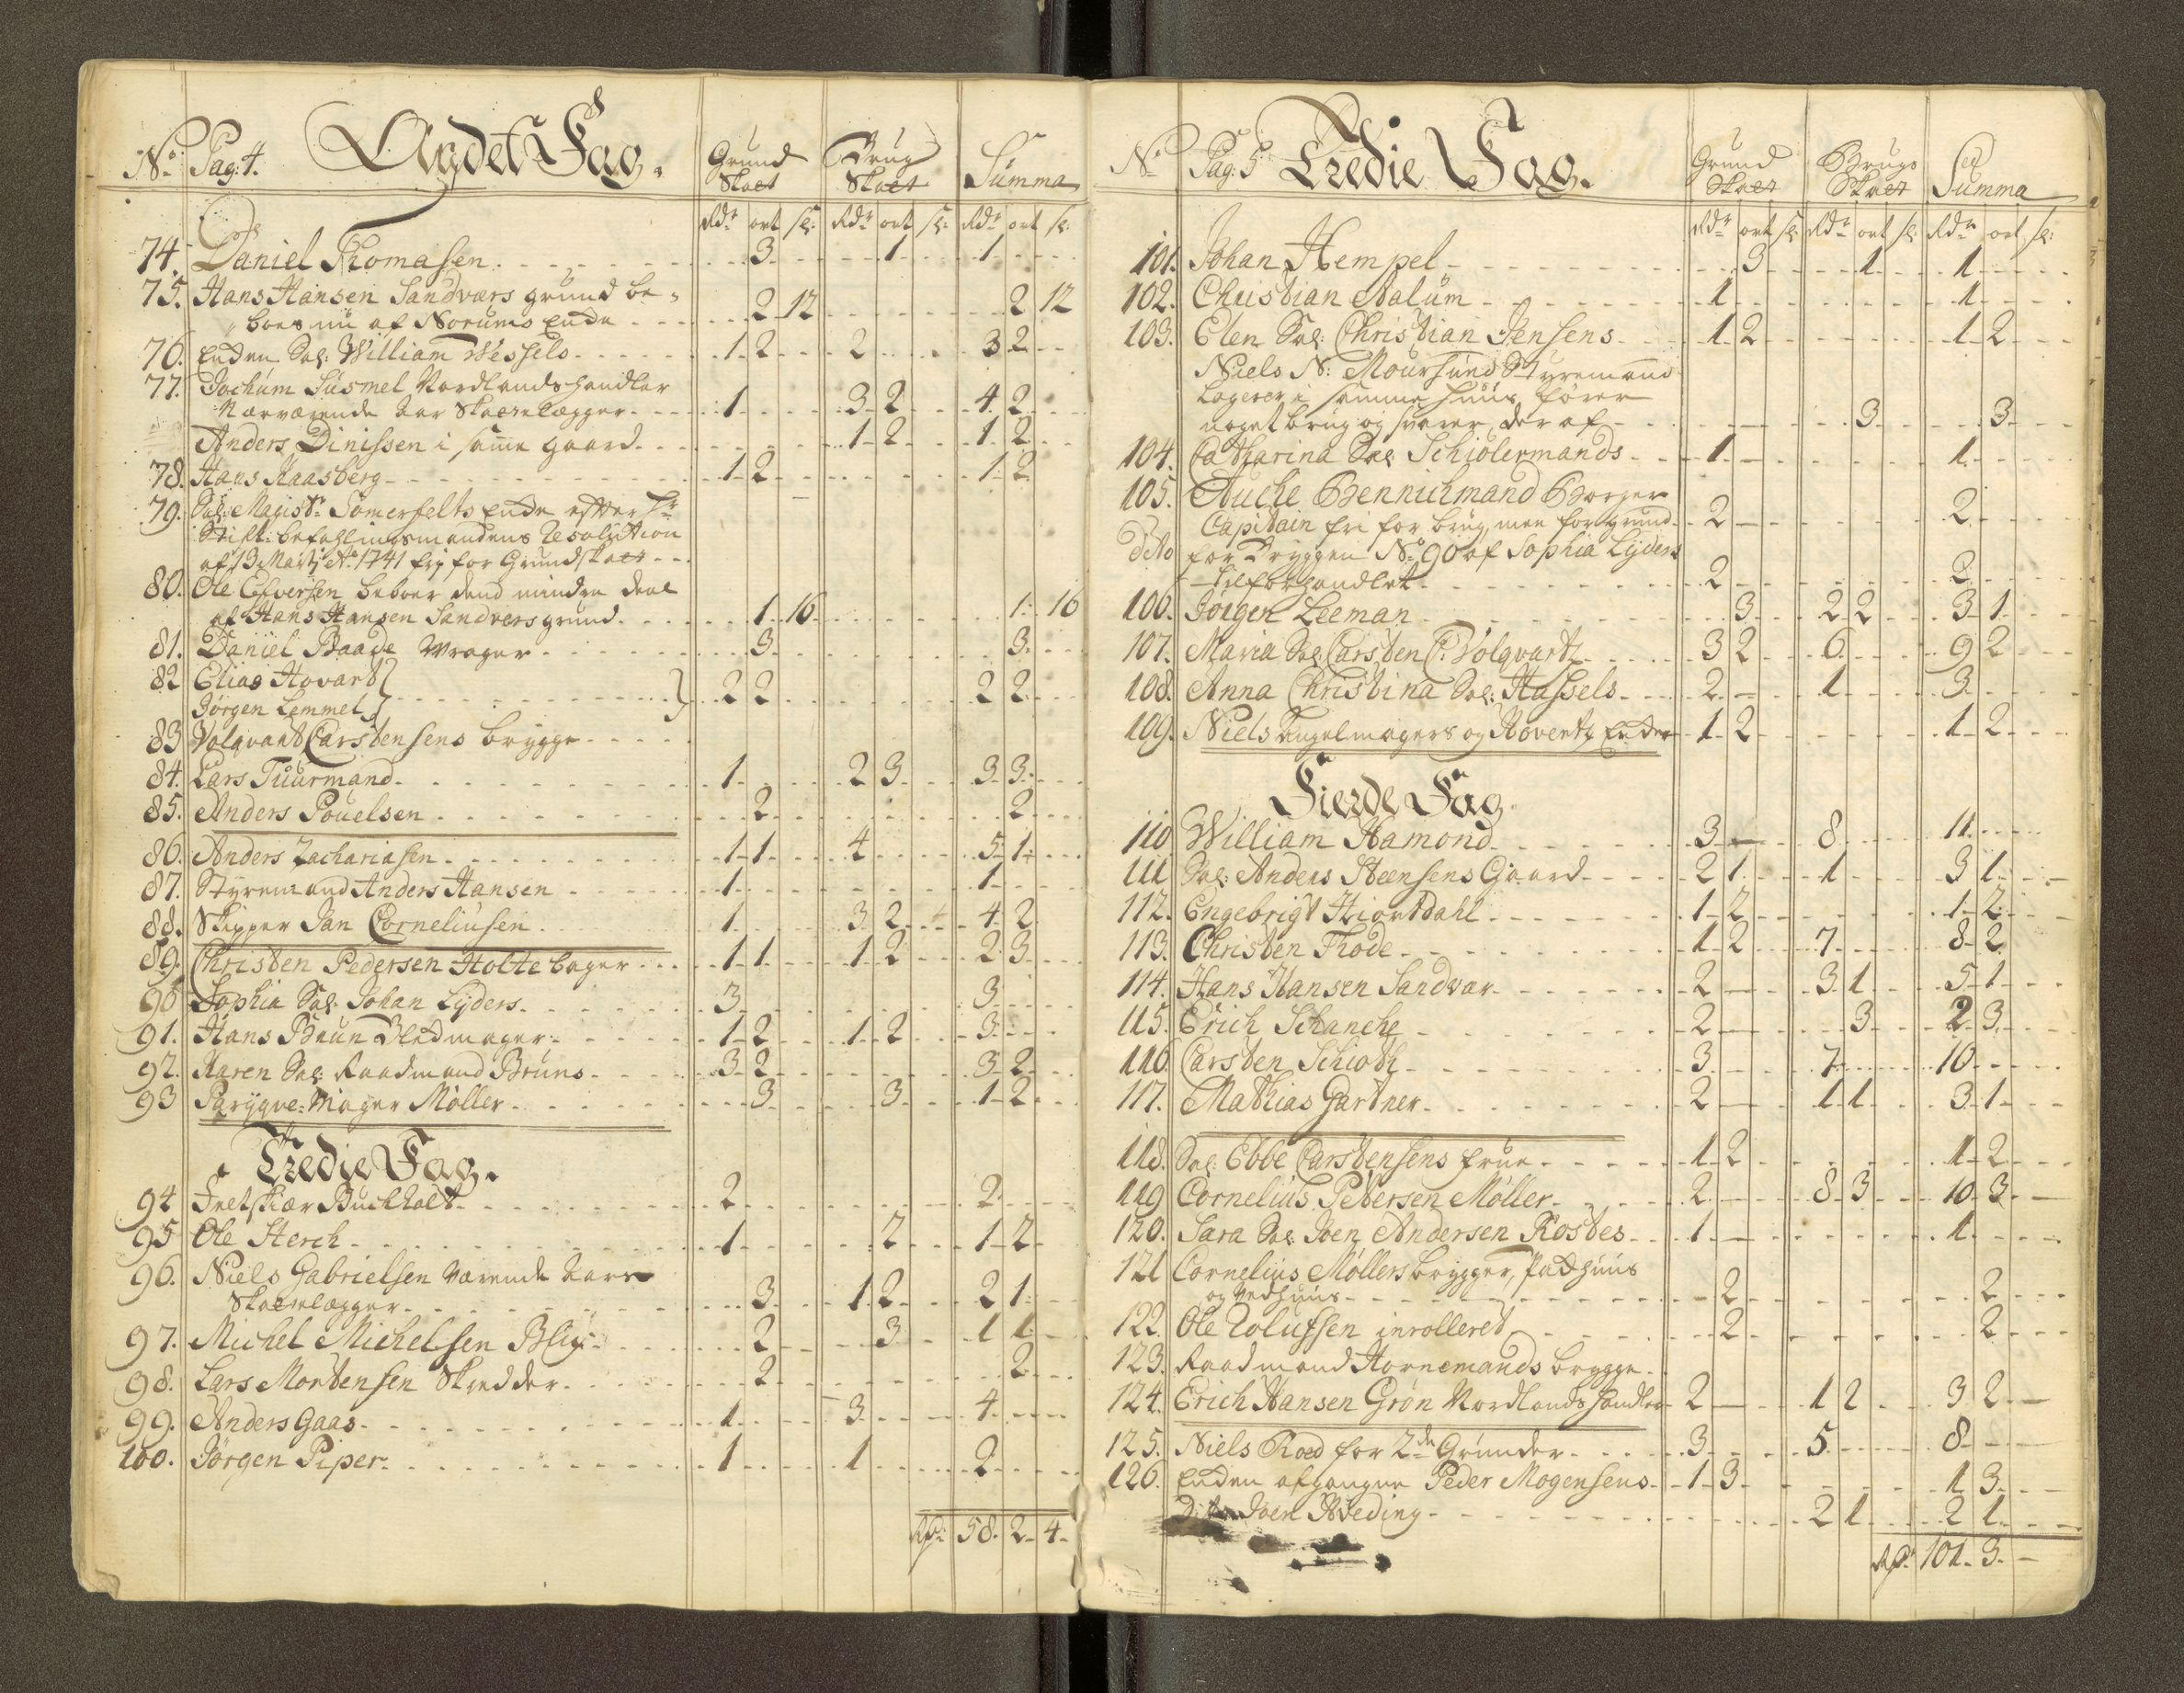 No Pag: 4. Andet Fag. Grund Skatt Brug Skatt Summa
Rdr ort sk: Rdr ort sk: Rdr ort sk:
74. Daniel Thomasen 3 1 1
75. Hans Hansen Sandværs grund be-
boes nu af Norums Enke 2 12 2 12
76. Enken Sal: William Wessels 1 2 2 3 2
77. Jochum Susmel Nordlandshandler
Nærværende Aar Skatte lægger 1 3 2 4 2
Anders Dinissen i same gaard 1 2 1 2
78. Hans Raasberg 1 2 1 2
79. Sal: Magistr Somerfelts Enke efter Hr
Stift-befahlingsmandens Resolution
af 13 Martj Ao 1741 frj for Grundskatt
80. Ole Efversen beboer dend mindre deel
af Hans Hansen Sandvers grund 1 16 1 16
81. Daniel Baade Wrager 3 3
82 Elias Hovart
Jørgen Lemmel 2 2 2 2
83 Volqvart Carstensens brygge
84. Lars Tuurmand 1 2 3 3 3
85. Anders Pouelsen 2 2
86. Anders Zachariasen 1 1 4 5 1
87. Styremand Anders Hansen 1 1
88. Skipper Jan Corneliusen 1 3 2 4 2
89. Christen Pedersen Holte bager 1 1 1 2 2 3
90 Sophia Sal: Johan Lyders 3 3
91. Hans Bruun Blokmager 1 2 1 2 3
92. Karen Sal: Raadmand Bruns 3 2 3 2
93 Parryqve-Mager Møller 3 3 1 2
Tredie Fag.
94 Buckholt 2 2
95 Ole Sterch 1 2 1 2
96. Niels Gabrielsen værende Aars
Skattelægger 3 1 2 2 1
97. Michel Michelsen Blix 2 3 1 1
98. Lars Mortensen Skredder 2 2
99. Anders Gaas 1 3 4
100. Jørgen Piper 1 1 2
Rdr 58 2 4
No Pag: 5 Tredie Fag. Grund Skatt Brugs Skatt Summa
Rdr ort sk: Rdr ort sk: Rdr ort sk:
101. Johan Hempel 3 1 1
102. Christian Aalum 1 1
103. Elen Sal: Christian Jensens 1 2 1 2
Niels N: Moursund Styremand
Logerer i samme Huus fører
noget brug og svarer der af 3 3
104. Catharina Sal Schiølermands 1 1
105. Auche Bennichmand Borger
Capitain fri for brug, men for grund 2 2
Dito for Bryggen No 90 af Sophia Lyders
tilforhandlet 2 2
106. Jørgen Leeman 3 2 2 3 1
107. Maria Sal: Carsten C: Volqvartz 3 2 6 9 2
108. Anna Christina Sal: Hassels 2 1 3
109. Niels Nagelmagers og Hovertz Enker 1 2 1 2
Fierde Fag.
110 William Hamond 3 8 11
111 Sal: Anders Steensens Gaard 2 1 1 3 1
112. Engebrigt Hiortdahl 1 2 1 2
113. Christen Thode 1 2 7 8 2
114. Hans Hansen Sandvær 2 3 1 5 1
115. Erich Schanche 2 3 2 3
116. Carsten Schiøth 3 7 10
117. Mathias Gartner 2 1 1 3 1
118. Sal: Ebbe Carstensens frue 1 2 1 2
119 Cornelius Petersen Møller 2 8 3 10 3
120. Sara Sal: Joen Andersen Rostes 1 1
121 Cornelius Møllers brygger, Pakhuus
og Vedhuus 2 2
122. Ole Rolufsen inrolleret 2 2
123. Raadmand Hornemands brygge
124. Erich Hansen Grøn Nordlandshandler 2 1 2 3 2
125. Niels Roed for 2de Grunder 3 5 8
126. Enken afgangne Peder Mogensens 1 3 1 3
Dito Joen Hveding 2 1 2 1
Rdr 101 3